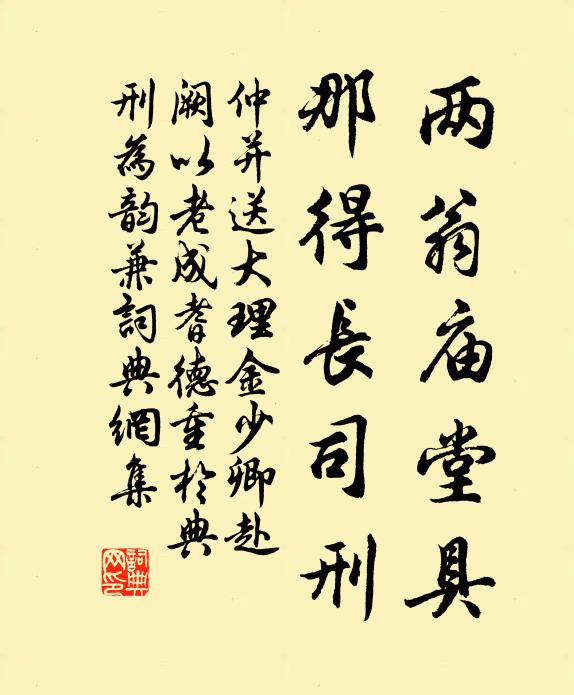 两翁庙堂具
那得長司刑
仲并送大理金少卿赴
阙以老成耆德重於典
刑為韵兼詞典網集
詞典網印